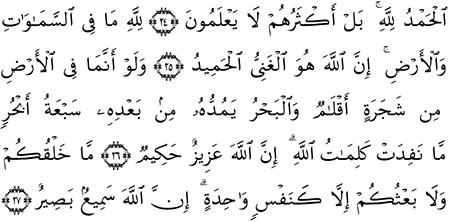 ٱلْحَمْدُ لِلَّهِ ۚ بَلْ أَكْثَرُهُمْ لَا يَعْلَمُونَ ٢٤ لِلَّهِ مَا فِى ٱلسَّمَـٰوَٰتِ
وَٱلْأَرْضِ ۚ إِنَّ ٱللَّهَ هُوَ ٱلْغَنِىُّ ٱلْحَمِيدُ ٢٥ وَلَوْ أَنَّمَا فِى ٱلْأَرْضِ
مِن شَجَرَةٍ أَقْلَـٰمٌ وَٱلْبَحْرُ يَمُدُّهُۥ مِنۢ بَعْدِهِۦ سَبْعَةُ أَبْحُرٍ
مَّا نَفِدَتْ كَلِمَـٰتُ ٱللَّهِ ۗ إِنَّ ٱللَّهَ عَزِيزٌ حَكِيمٌ ٢٦ مَّا خَلْقُكُمْ
وَلَا بَعْثُكُمْ إِلَّا كَنَفْسٍ وَٰحِدَةٍ ۗ إِنَّ ٱللَّهَ سَمِيعٌۢ بَصِيرٌ ٢٧